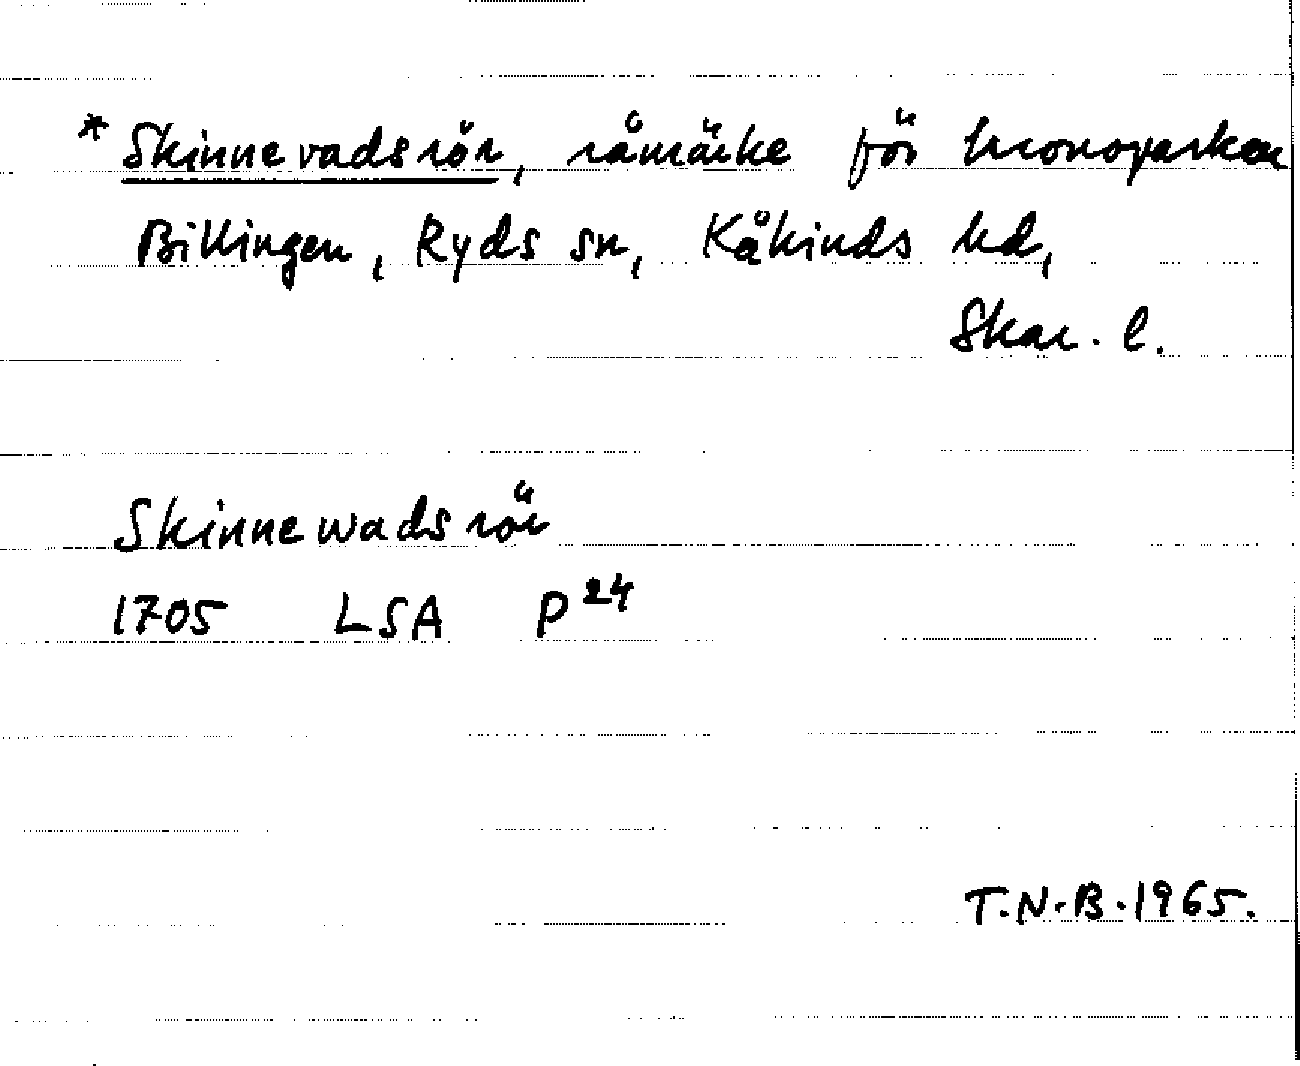 * Skinnevadsrör, råmärke för kronoparken
Billingen, Ryds sn, Kåkinds hd,
Skar. l.
Skinnewadsrör
1705 LSA P 24
T.N.B. 1965.